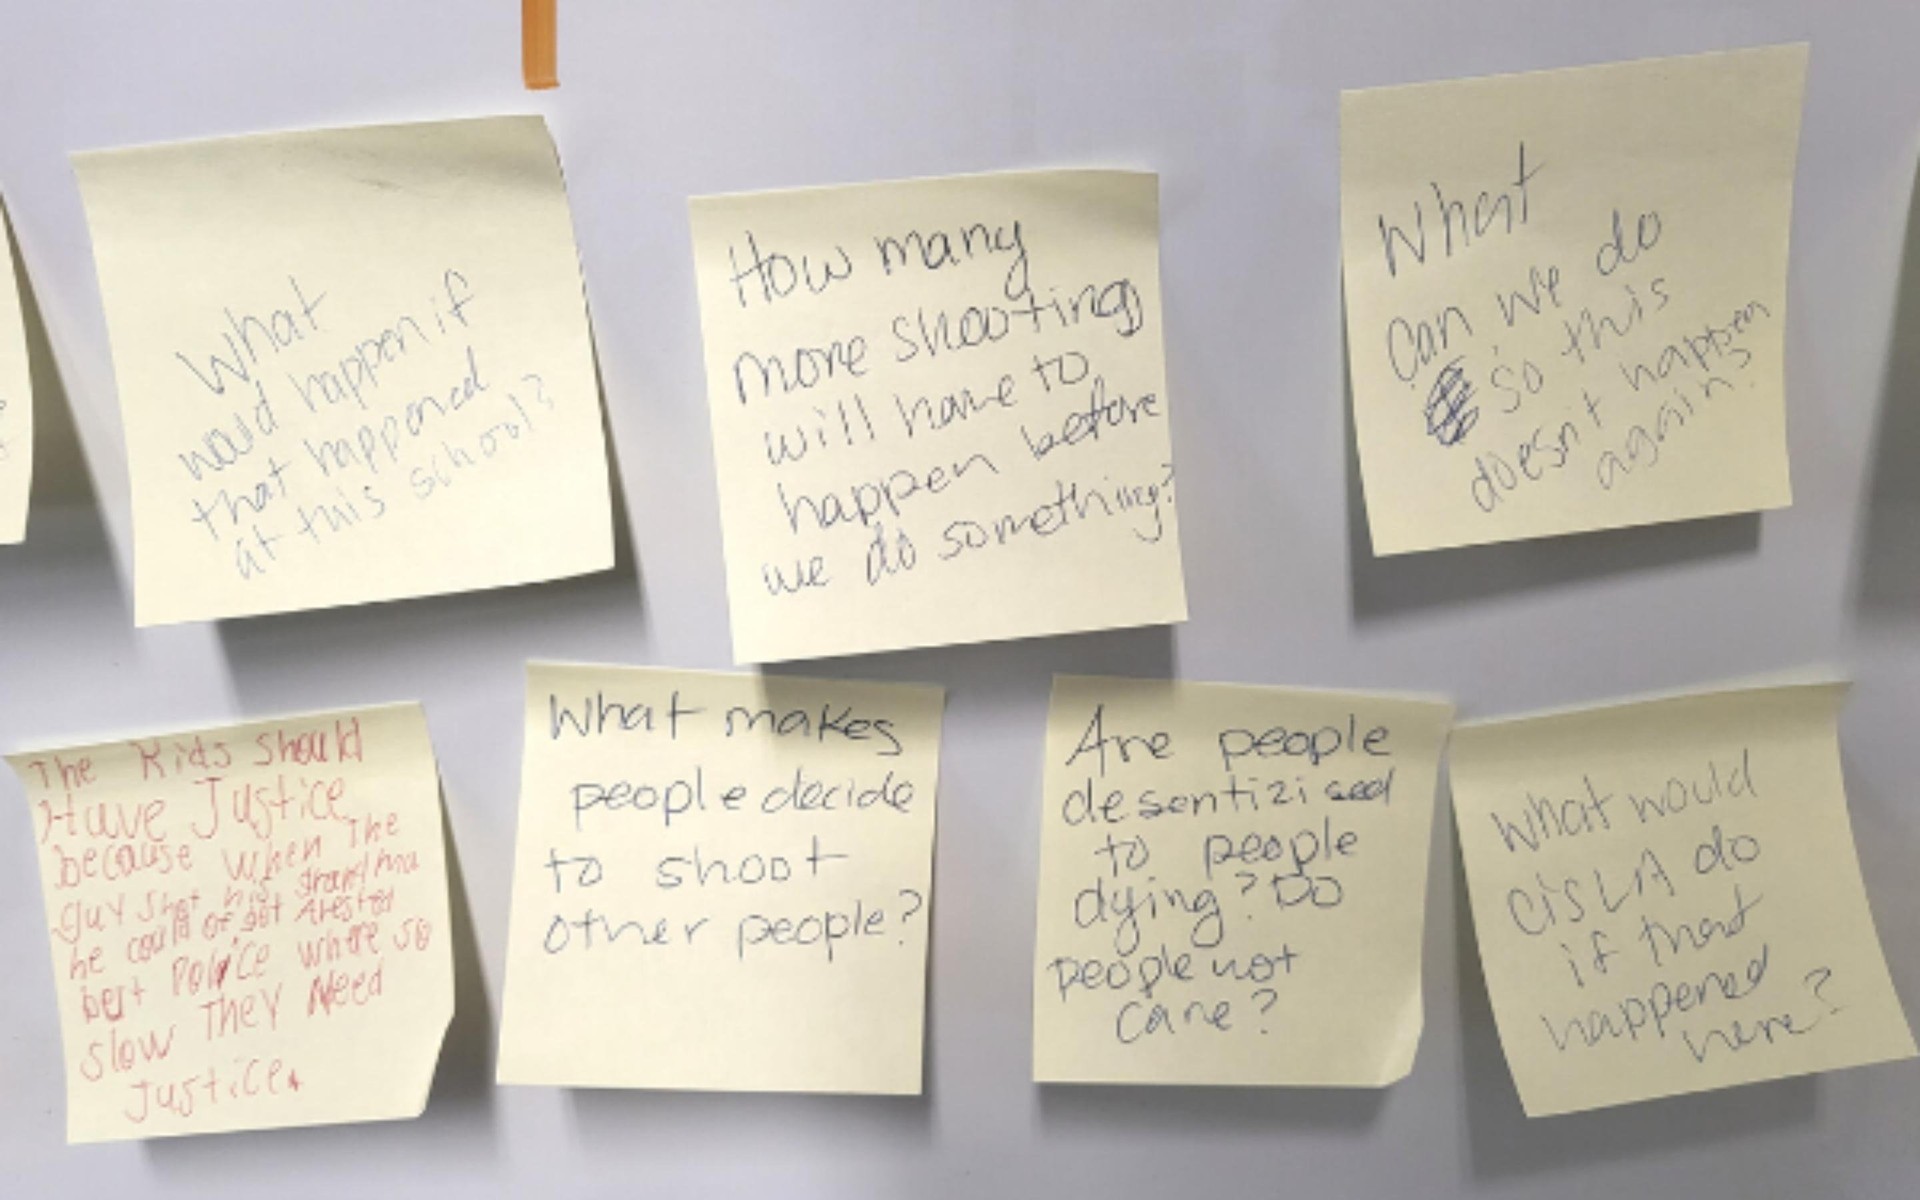 What
would happen if
that happened
at this school?
How many
more shooting
will have to
happen before
we do something?
What
can we do
so this
doesn't happen
again?
The Kids should
Have Justice
because when The
guy shot his grandma
he could of got Arested
bert Police where so
slow They Need
Justice.
What makes
people decide
to shoot
other people?
Are people
desentizised
to people
dying? Do
people not
care?
What would
CISLA do
if that
happened
here?